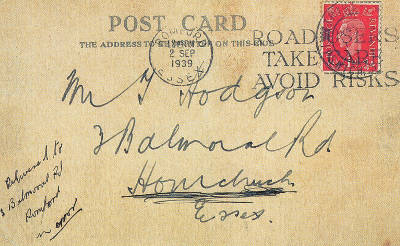 POST CARD
THE ADDRESS TO BE WRITTEN ON THIS SIDE
ROMFORD
2 SEP
1939
ESSEX
ROAD USERS
TAKE CARE
AVOID RISKS
Mr T Hodgson
3 Balmoral Rd
Hornchurch
Essex.
Delivered to
3 Balmoral Rd
Romford
in error